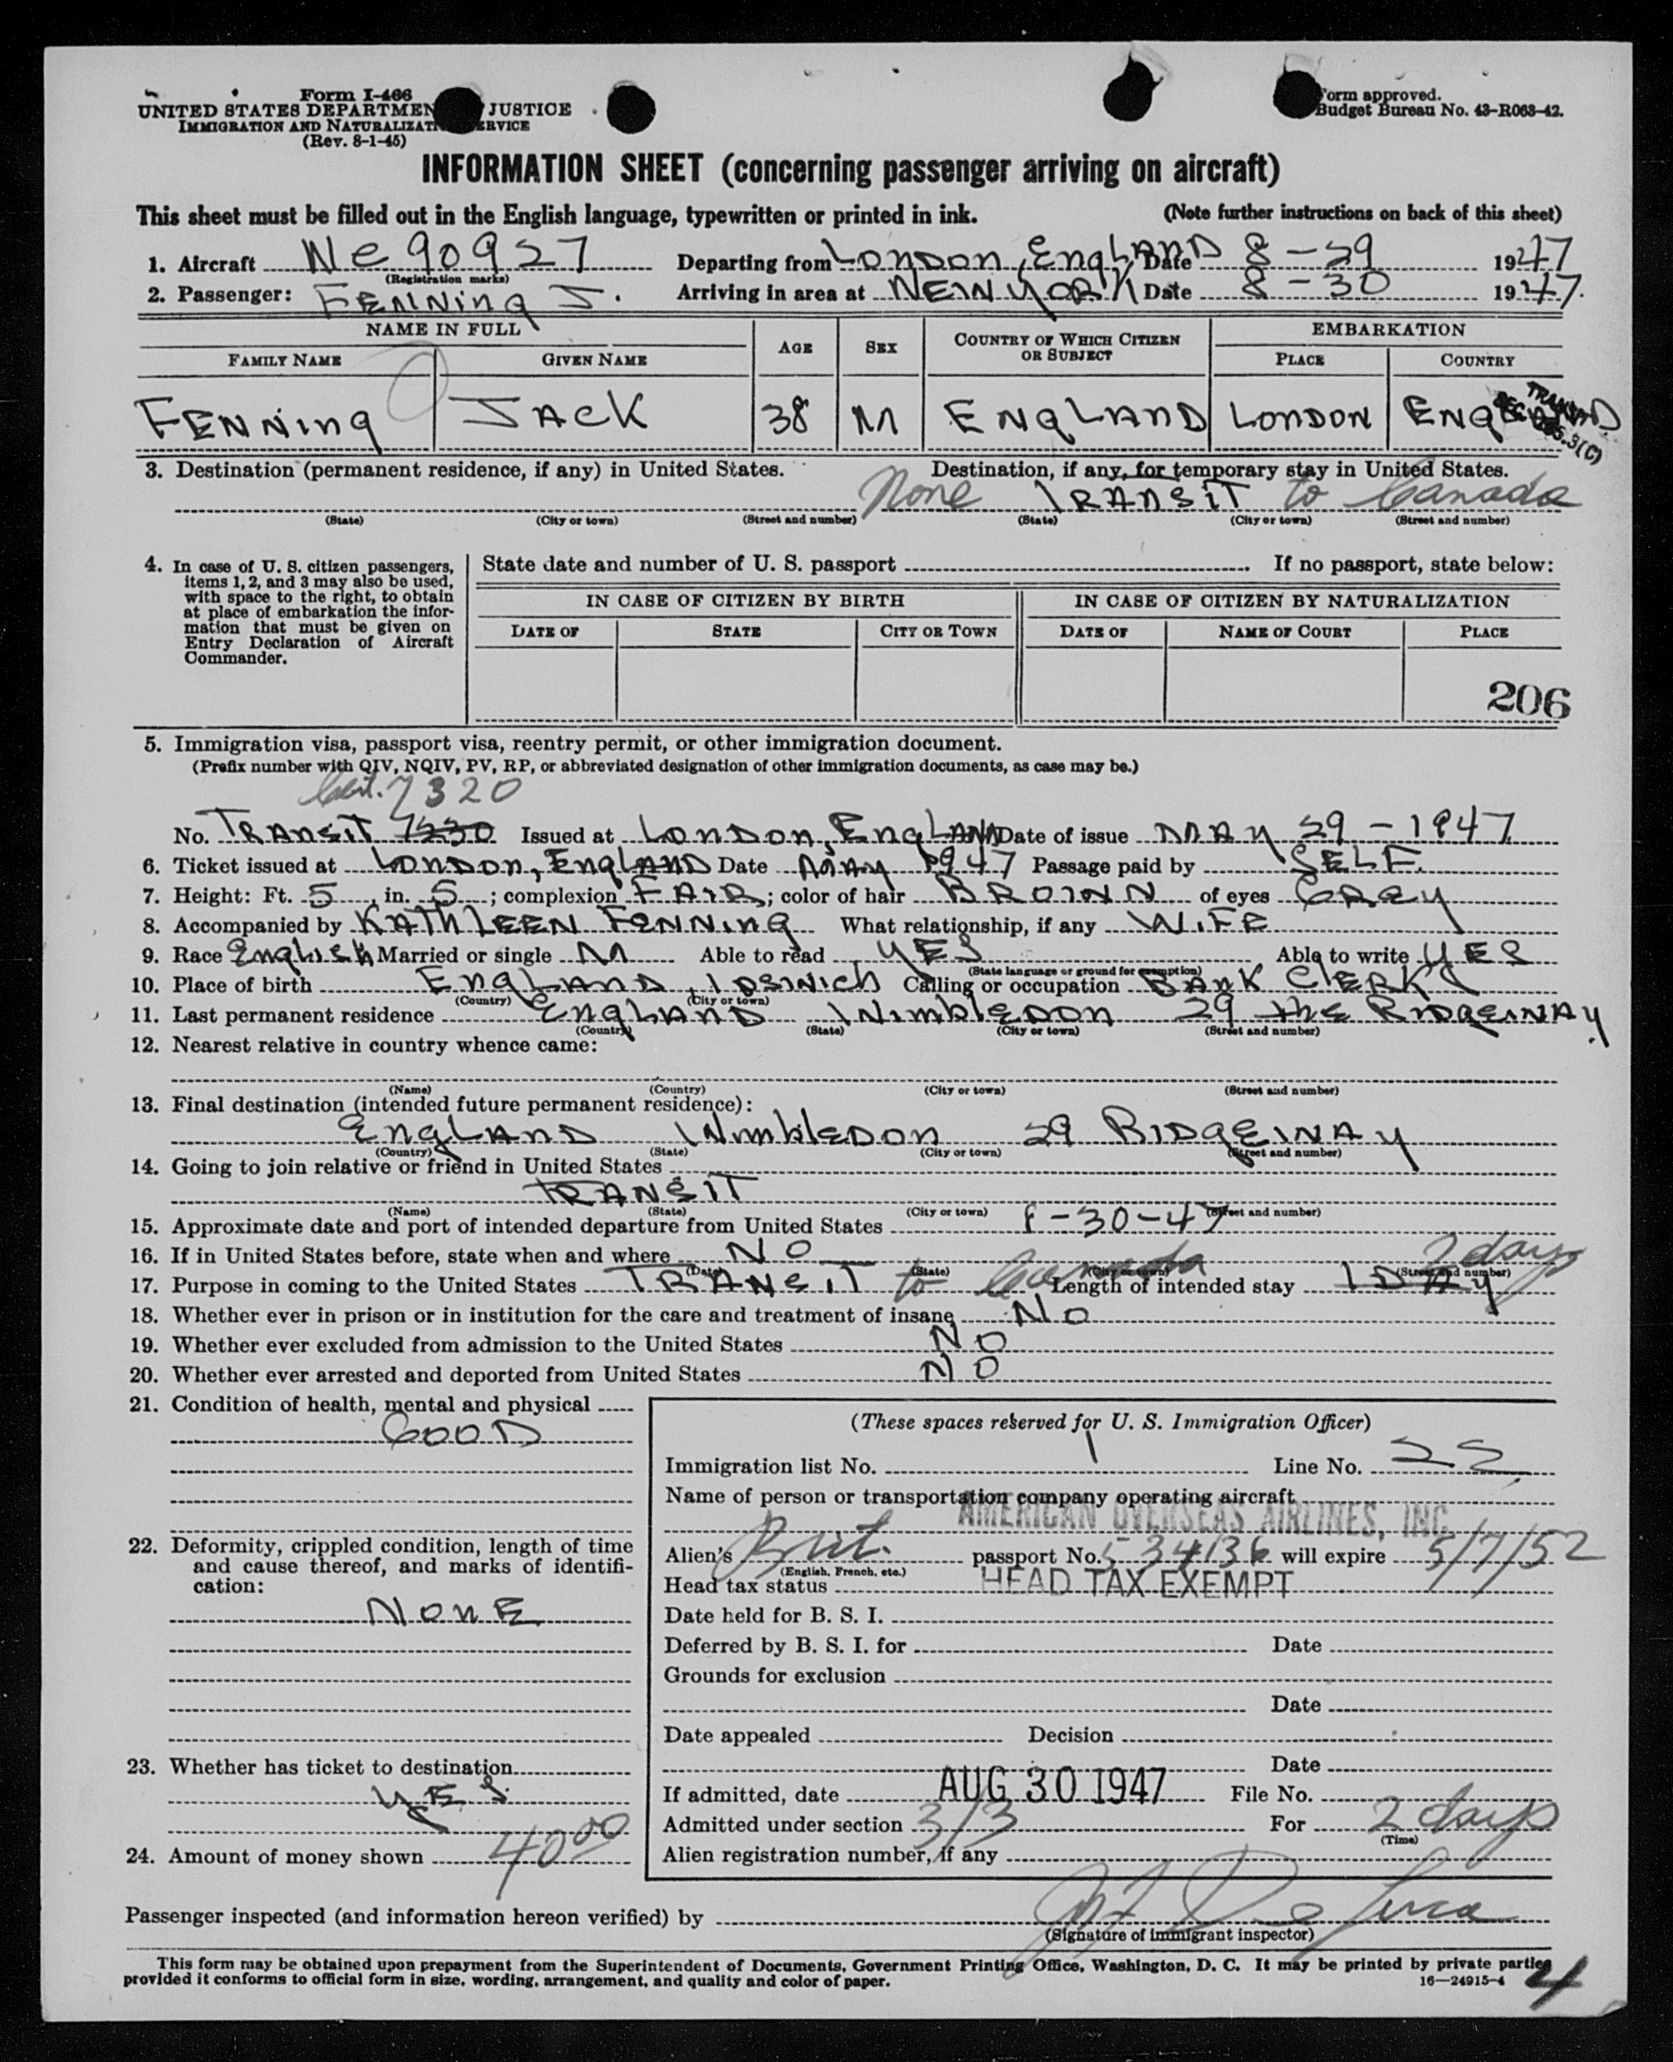 Form I-466
UNITED STATES DEPARTMEN JUSTICE
IMMIGRATION AND NATURALIZATI ERVICE
(Rev. 8-1-45)
orm approved.
Budget Bureau No. 43-R063-42.
INFORMATION SHEET (concerning passenger arriving on aircraft)
This sheet must be filled out in the English language, typewritten or printed in ink. (Note further instructions on back of this sheet)
1. Aircraft Nc 90927 Departing from LONDON, ENGLAND Date 8-29 1947
(Registration marks)
2. Passenger: FENNING J. Arriving in area at NEW YORK Date 8-30 1947.
NAME IN FULL AGE SEX COUNTRY OF WHICH CITIZEN OR SUBJECT EMBARKATION
FAMILY NAME GIVEN NAME PLACE COUNTRY
FENNING JACK 38 M ENGLAND LONDON ENGLAND
TRANSIT
SEC. 3(C)
3. Destination (permanent residence, if any) in United States. Destination, if any, for temporary stay in United States.
None TRANSIT to Canada
(State) (City or town) (Street and number) (State) (City or town) (Street and number)
4. In case of U. S. citizen passengers, items 1, 2, and 3 may also be used, with space to the right, to obtain at place of embarkation the information that must be given on Entry Declaration of Aircraft Commander.
State date and number of U. S. passport If no passport, state below:
IN CASE OF CITIZEN BY BIRTH IN CASE OF CITIZEN BY NATURALIZATION
DATE OF STATE CITY OR TOWN DATE OF NAME OF COURT PLACE
206
5. Immigration visa, passport visa, reentry permit, or other immigration document.
(Prefix number with QIV, NQIV, PV, RP, or abbreviated designation of other immigration documents, as case may be.)
Cert. 7320
No. TRANSIT 7330 Issued at LONDON, ENGLAND Date of issue MAY 29-1947
6. Ticket issued at LONDON, ENGLAND Date MAY 1947 Passage paid by SELF.
7. Height: Ft. 5 in. 5; complexion FAIR; color of hair BROWN of eyes GREY
8. Accompanied by KATHLEEN FENNING What relationship, if any WIFE
9. Race English Married or single M Able to read YES Able to write YES
(State language or ground for exemption)
10. Place of birth ENGLAND, IPSWICH Calling or occupation BANK CLERK
(Country) (City or town)
11. Last permanent residence ENGLAND WIMBLEDON 29 THE RIDGEWAY.
(Country) (State) (City or town) (Street and number)
12. Nearest relative in country whence came:
(Name) (Country) (City or town) (Street and number)
13. Final destination (intended future permanent residence):
ENGLAND WIMBLEDON 29 RIDGEWAY
(Country) (State) (City or town) (Street and number)
14. Going to join relative or friend in United States
TRANSIT
(Name) (State) (City or town) (Street and number)
15. Approximate date and port of intended departure from United States 8-30-47
16. If in United States before, state when and where NO
(Date) (State) (City or town) (Street and number)
2 days
17. Purpose in coming to the United States TRANSIT to Canada Length of intended stay 1 DAY
18. Whether ever in prison or in institution for the care and treatment of insane NO
19. Whether ever excluded from admission to the United States NO
20. Whether ever arrested and deported from United States NO
21. Condition of health, mental and physical
GOOD
22. Deformity, crippled condition, length of time and cause thereof, and marks of identification:
NONE
23. Whether has ticket to destination
YES.
24. Amount of money shown 40 00
(These spaces reserved for U. S. Immigration Officer)
Immigration list No. 1 Line No. 22
Name of person or transportation company operating aircraft
AMERICAN OVERSEAS AIRLINES, INC
Alien's Brit. passport No. 534136 will expire 5/7/52
(English, French, etc.)
Head tax status HEAD TAX EXEMPT
Date held for B. S. I.
Deferred by B. S. I. for Date
Grounds for exclusion
Date
Date appealed Decision
Date
If admitted, date AUG 30 1947 File No.
Admitted under section 3/3 For 2 days
(Time)
Alien registration number, if any
Passenger inspected (and information hereon verified) by
(Signature of immigrant inspector)
This form may be obtained upon prepayment from the Superintendent of Documents, Government Printing Office, Washington, D. C. It may be printed by private parties
provided it conforms to official form in size, wording, arrangement, and quality and color of paper. 16—24915-4
4